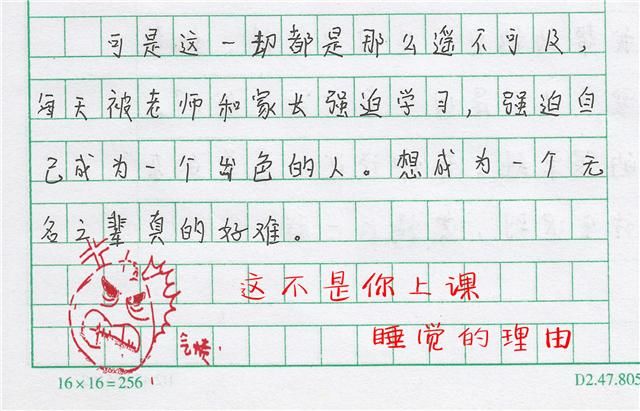 可是这一劫都是那么遥不可及，
每天被老师和家长强迫学习，强迫自
己成为一个出色的人。想成为一个无
名之辈真的好难。
这不是你上课
睡觉的理由
16×16=256
D2.47.805